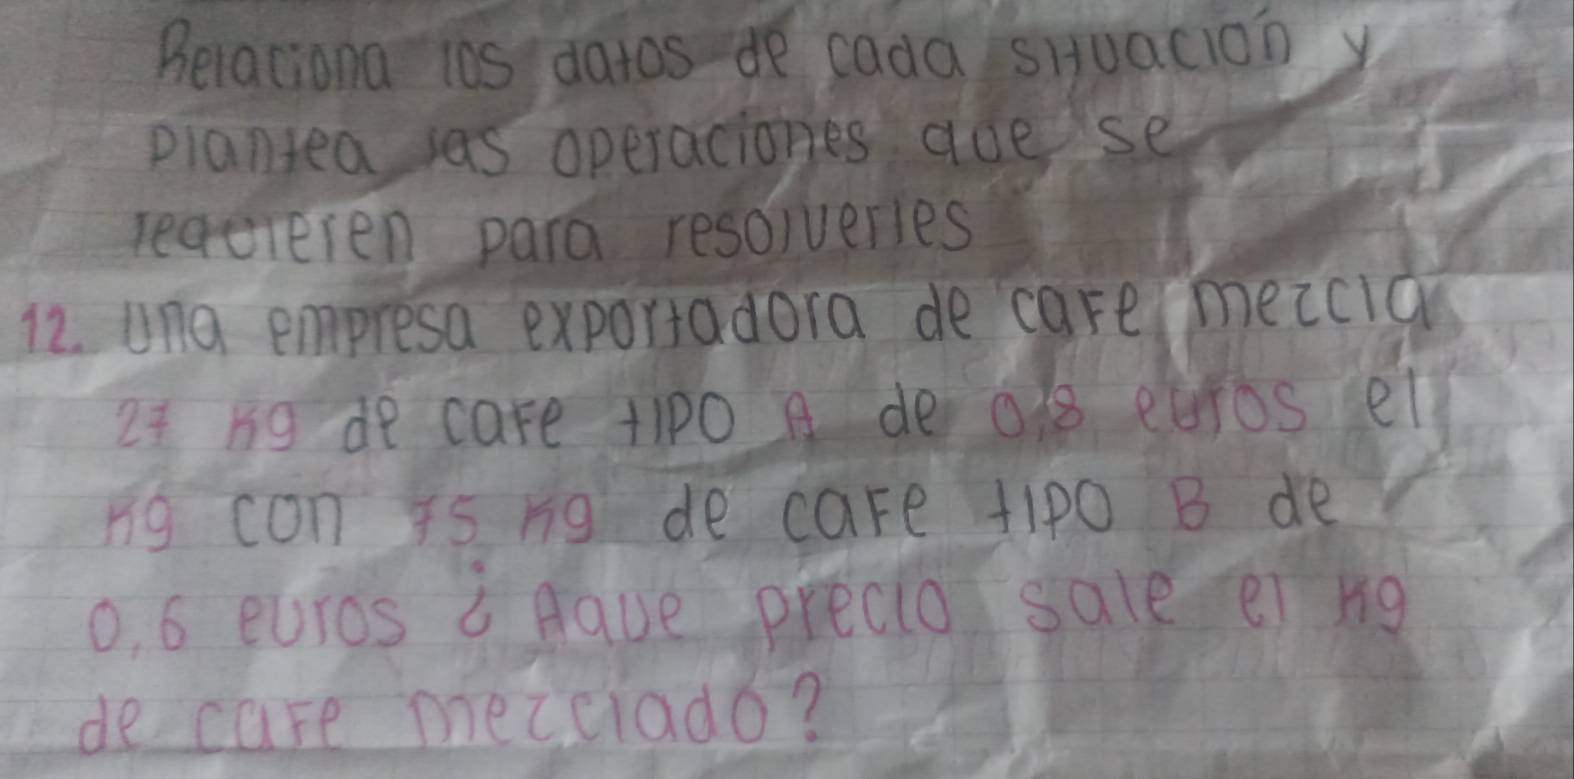 Relaciona los datos de cada situación y
plantea las operaciones que se
requieren para resolverles
12. Una empresa exportadora de cafe mezcla
27 kg de cafe tipo A de 0,8 euros el
kg con 75 kg de cafe tipo B de
0,6 euros ¿ Aque precio sale el kg
de cafe mezclado?